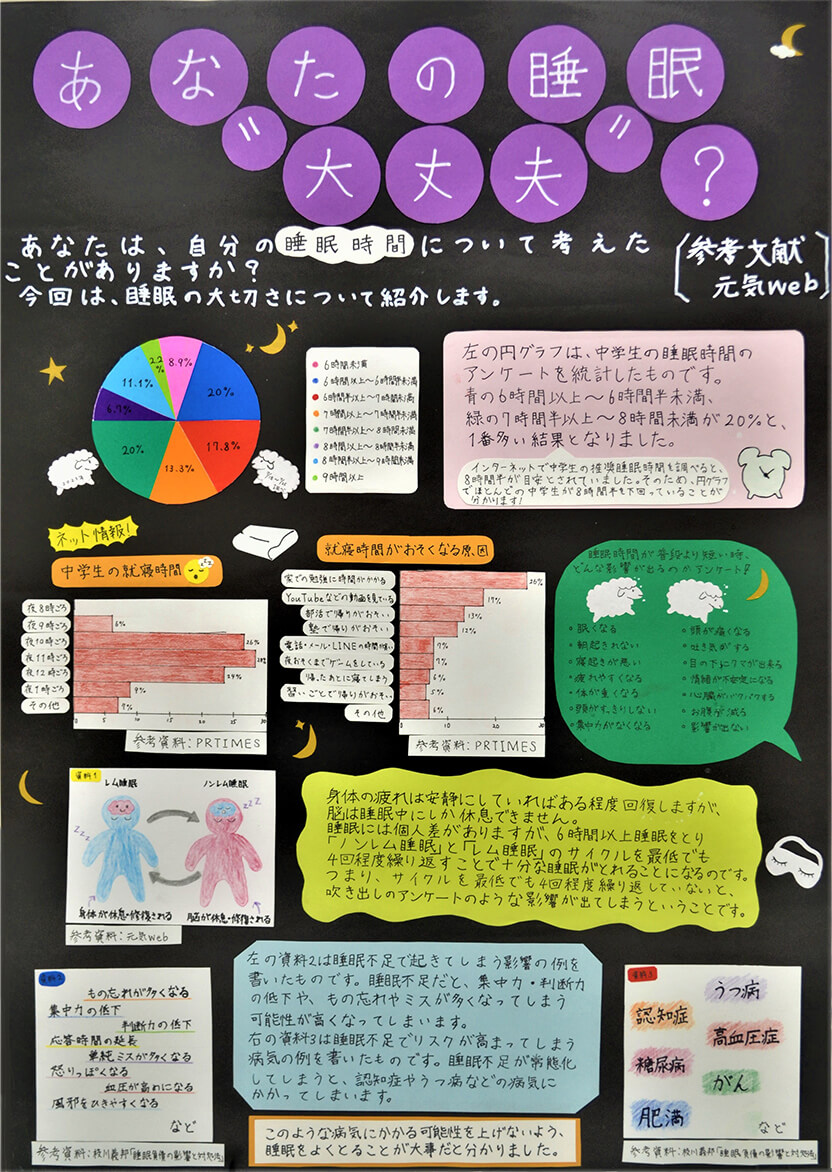 あなたの睡眠
〝大丈夫〟？
あなたは、自分の睡眠時間について考えた
ことがありますか？
今回は、睡眠の大切さについて紹介します。
参考文献
元気web
8.9%
20%
17.8%
13.3%
20%
6.7%
11.1%
2.2%
6時間未満
6時間以上～6時間半未満
6時間半以上～7時間未満
7時間以上～7時間半未満
7時間半以上～8時間未満
8時間以上～8時間半未満
8時間半以上～9時間未満
9時間以上
左の円グラフは、中学生の睡眠時間の
アンケートを統計したものです。
青の6時間以上～6時間半未満、
緑の7時間半以上～8時間未満が20%と、
1番多い結果となりました。
インターネットで中学生の推奨睡眠時間を調べると、
8時間半が目安とされていました。そのため、円グラフ
でほとんどの中学生が8時間半を下回っていることが
分かります！
ネット情報！
中学生の就寝時間
夜8時ごろ
夜9時ごろ 6%
夜10時ごろ 26%
夜11時ごろ
夜12時ごろ
夜1時ごろ 9%
その他 7%
0 5 10 15 20 25 30
参考資料：PRTIMES
就寝時間がおそくなる原因
家での勉強に時間がかかる 26%
YouTubeなどの動画を見ている
部活で帰りがおそい 13%
塾で帰りがおそい 12%
電話・メール・LINEの時間が長い 7%
夜おそくまでゲームをしている 7%
帰ったあとに寝てしまう 6%
習いごとで帰りがおそい 5%
その他 6%
0 10 20 30
参考資料：PRTIMES
睡眠時間が普段より短い時、
どんな影響が出るのかアンケート！
・眠くなる
・朝起きれない
・寝起きが悪い
・疲れやすくなる
・体が重くなる
・頭がすっきりしない
・集中力がなくなる
・頭が痛くなる
・吐き気がする
・目の下にクマが出来る
・情緒が不安定になる
・心臓がバクバクする
・お腹が減る
・影響が出ない
資料1
レム睡眠
ノンレム睡眠
zzz
zzz
身体が休息・修復される
脳が休息・修復される
参考資料：元気web
身体の疲れは安静にしていればある程度回復しますが、
脳は睡眠中にしか休息できません。
睡眠には個人差がありますが、6時間以上睡眠をとり
「ノンレム睡眠」と「レム睡眠」のサイクルを最低でも
4回程度繰り返すことで十分な睡眠がとれることになるのです。
つまり、サイクルを最低でも4回程度繰り返していないと、
吹き出しのアンケートのような影響が出てしまうということです。
資料2
もの忘れが多くなる
集中力の低下
判断力の低下
応答時間の延長
単純ミスが多くなる
怒りっぽくなる
血圧が高めになる
風邪をひきやすくなる
など
参考資料：枝川義邦「睡眠負債の影響と対処法」
左の資料2は睡眠不足で起きてしまう影響の例を
書いたものです。睡眠不足だと、集中力・判断力
の低下や、もの忘れやミスが多くなってしまう
可能性が高くなってしまいます。
右の資料3は睡眠不足でリスクが高まってしまう
病気の例を書いたものです。睡眠不足が常態化
してしまうと、認知症やうつ病などの病気に
かかってしまいます。
資料3
うつ病
認知症
高血圧症
糖尿病
がん
肥満
など
参考資料：枝川義邦「睡眠負債の影響と対処法」
このような病気にかかる可能性を上げないよう、
睡眠をよくとることが大事だと分かりました。